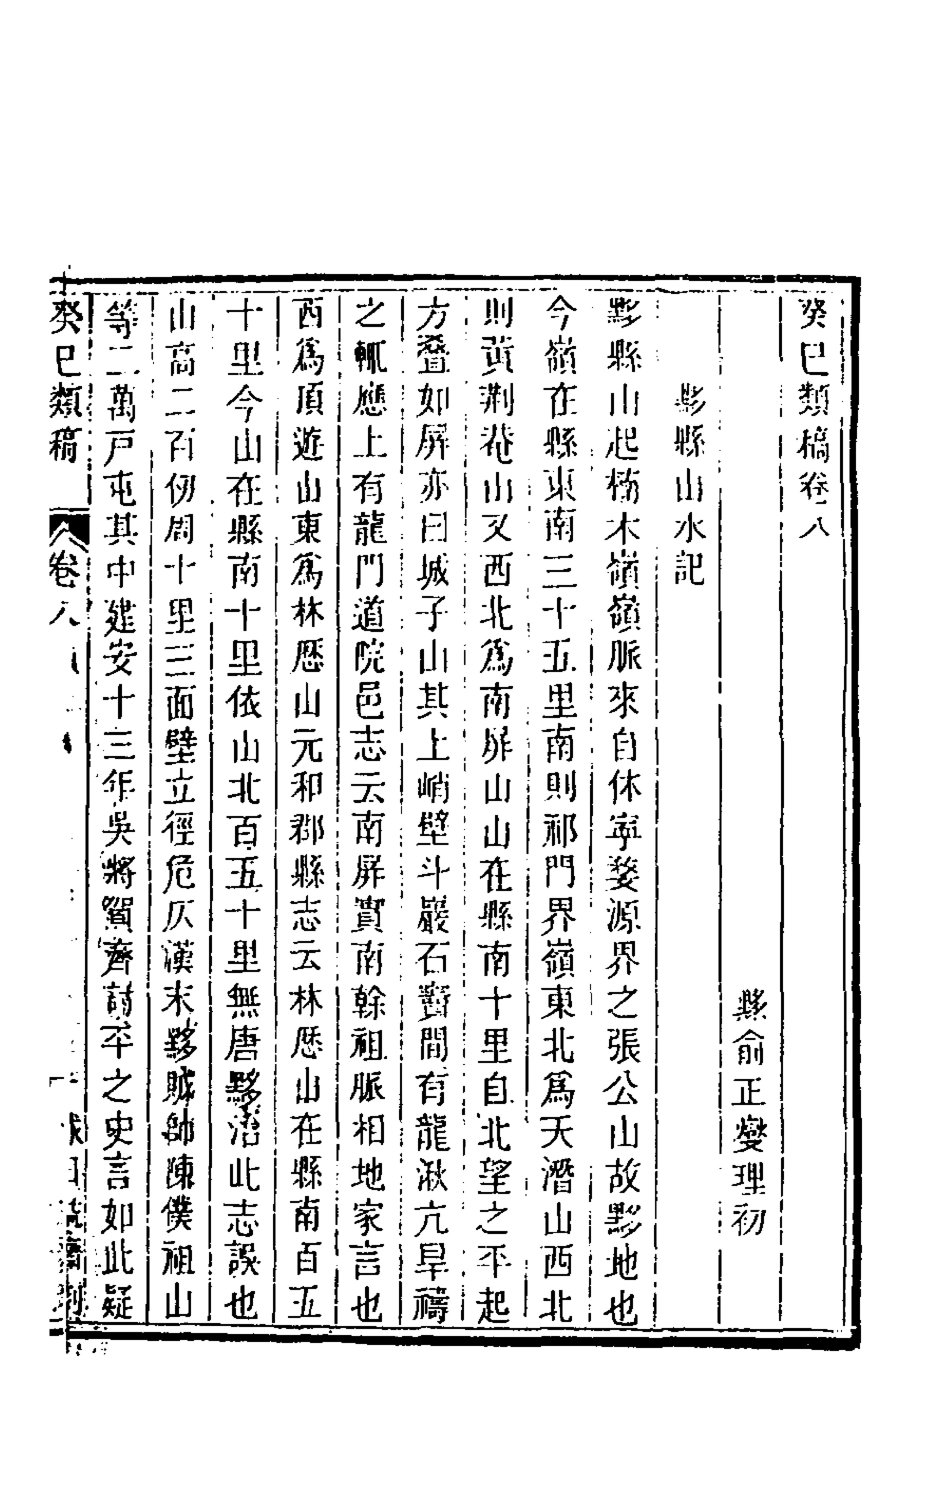 癸巳類稿卷八
黟俞正燮理初
黟縣山水記
黟縣山起櫛木嶺嶺脈來自休寧婺源界之張公山故黟地也
今嶺在縣東南三十五里南則祁門界嶺東北爲天潛山西北
則黃荆巷山又西北爲南屏山山在縣南十里自北望之平起
方疊如屏亦曰城子山其上峭壁斗巖石竇間有龍湫亢旱禱
之輒應上有龍門道院邑志云南屏實南幹祖脈相地家言也
西爲頂遊山東爲林歷山元和郡縣志云林歷山在縣南百五
十里今山在縣南十里依山北百五十里無唐黟治此志誤也
山高二百仞周十里三面壁立徑危仄漢末黟賊帥陳僕祖山
等二萬戸屯其中建安十三年吳將賀齊討平之史言如此疑
癸巳類稿
卷八